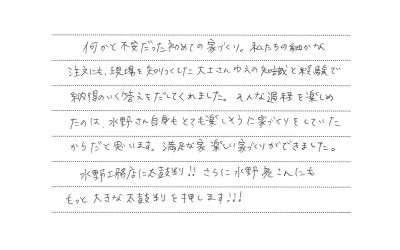 何かと不安だった初めての家づくり。私たちの細かな
注文にも、現場を知りつくした大工さんゆえの知識と経験で
納得のいく答えをだしてくれました。そんな過程を楽しめ
たのは、水野さん自身もとても楽しそうに家づくりをしていた
からだと思います。満足な家、楽しい家づくりができました。
水野工務店に太鼓判!! さらに水野亮さんにも
もっと大きな太鼓判を押します!!!